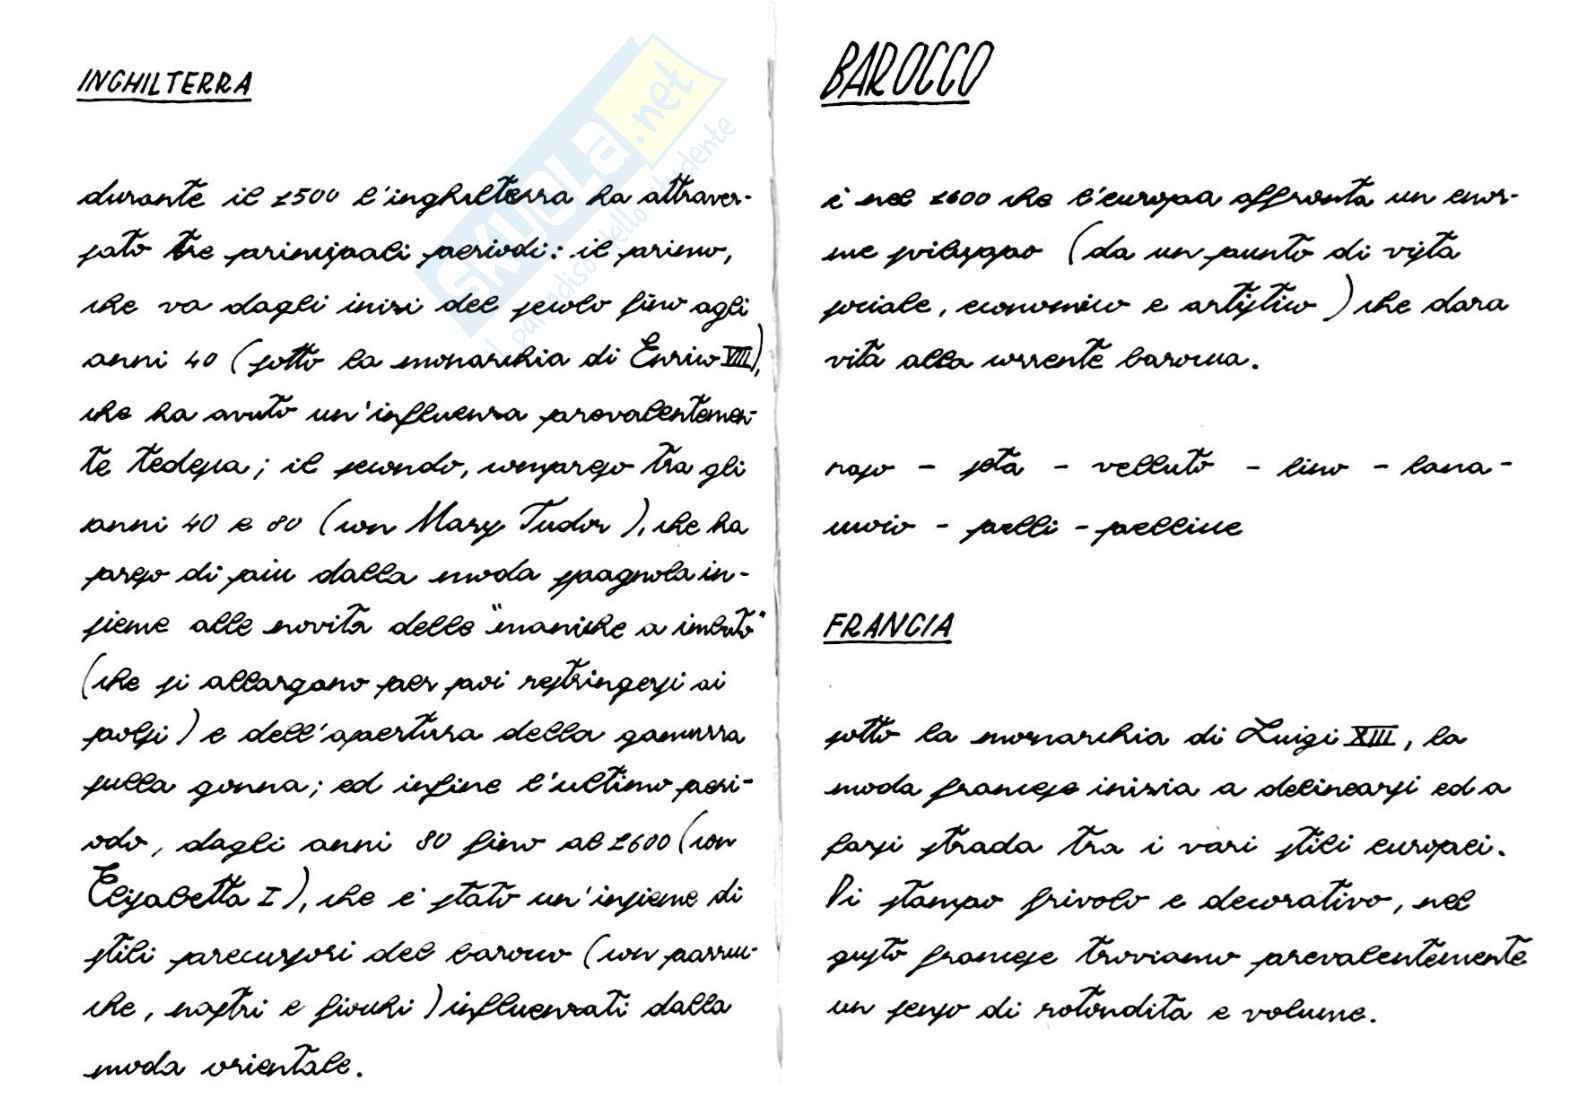 INGHILTERRA
durante il 1500 l'inghilterra ha attraver-
sato tre principali periodi: il primo,
che va dagli inizi del secolo fino agli
anni 40 (sotto la monarchia di Enrico VIII),
che ha avuto un'influenza prevalentemen-
te tedesca; il secondo, compreso tra gli
anni 40 e 80 (con Mary Tudor), che ha
preso di piu dalla moda spagnola in-
sieme alle novita delle "maniche a imbuto"
(che si allargano per poi restringersi ai
polsi) e dell'apertura della gamurra
sulla gonna; ed infine l'ultimo peri-
odo, dagli anni 80 fino al 1600 (con
Elisabetta I), che e' stato un'insieme di
stili precursori del barocco (con parruc-
che, nastri e fiocchi) influenzati dalla
moda orientale.
BAROCCO
è nel 1600 che l'europa affronta un enor-
me sviluppo (da un punto di vista
sociale, economico e artistico) che dara
vita alla corrente barocca.
raso - seta - velluto - lino - lana -
cuoio - pelli - pellicce
FRANCIA
sotto la monarchia di Luigi XIII, la
moda francese inizia a delinearsi ed a
farsi strada tra i vari stili europei.
Di stampo frivolo e decorativo, nel
gusto francese troviamo prevalentemente
un senso di rotondita e volume.
SKUOLA.net
il paradiso dello studente